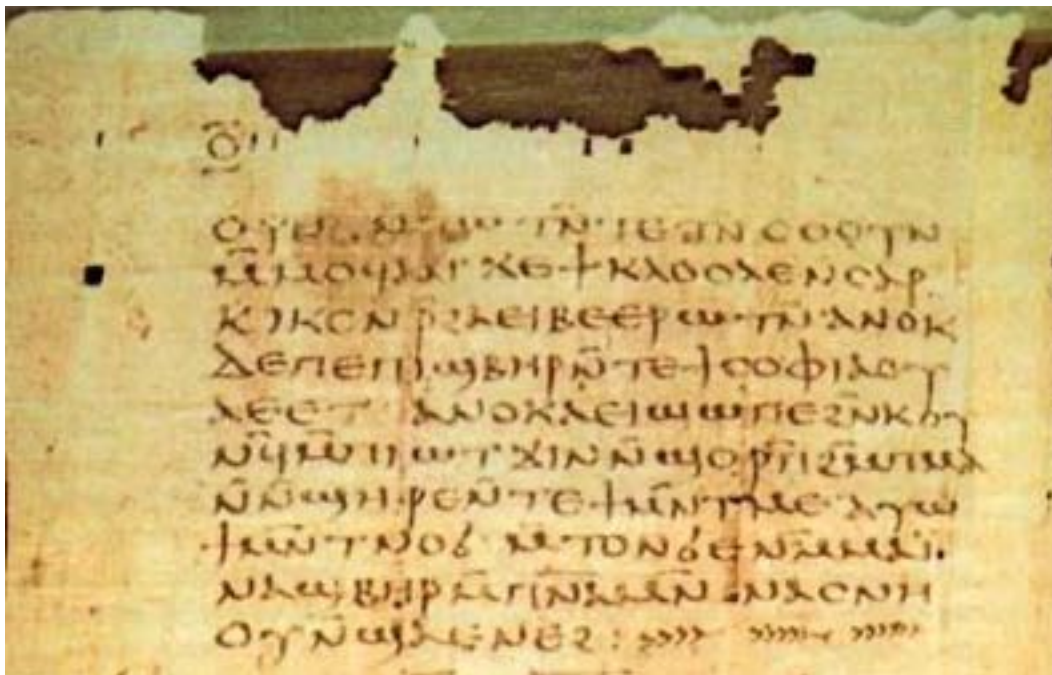 ⲟ̅
ⲥⲟϥⲧⲛ
ⲙ̅ⲙⲟϥ ϫⲉ ϯⲕⲁⲑⲟⲗⲉⲛ ⲥⲁⲣ
ⲕⲓⲕⲟⲛ ⲣ̅ϩⲁⲉⲓⲃⲉ ⲉⲣⲱⲧⲛ̅ ⲁⲛⲟⲕ
ⲇⲉ ⲡⲉ ⲡⲓϣⲃⲏⲣ ⲛ̅ⲧⲉ ϯⲥⲟⲫⲓⲁ ⲟⲩ
ⲁⲉⲉⲧ ⲁⲛⲟⲕ ⲁⲉⲓϣⲱⲡⲉ ϩⲛ̅ ⲕⲟⲩ
ⲛ̅ϥ ⲙ̅ⲡⲓⲱⲧ ϫⲓⲛ ⲛ̅ϣⲟⲣⲡ̅ ϩⲙ̅ ⲡⲙⲁ
ⲛ̅ⲛ̅ϣⲏⲣⲉ ⲛ̅ⲧⲉ ϯⲙⲛ̅ⲧⲙⲉ ⲁⲩⲱ
ϯⲙⲛ̅ⲧⲛⲟϭ ⲙ̅ⲧⲟⲛ ϭⲉ ⲛⲙ̅ⲙⲁⲓ
ⲛⲁϣⲃⲏⲣ ⲙ̅ⲡⲛ̅ⲁ̅ ⲙⲛ̅ ⲛⲁⲥⲛⲏ
ⲟⲩ ⲛ̅ϣⲁ ⲉⲛⲉϩ :